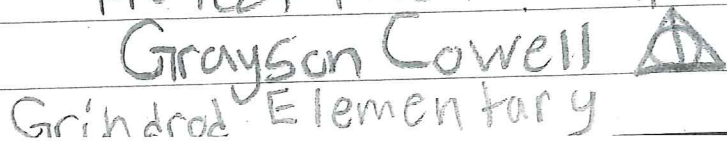 Grayson Cowell
Grindrod Elementary